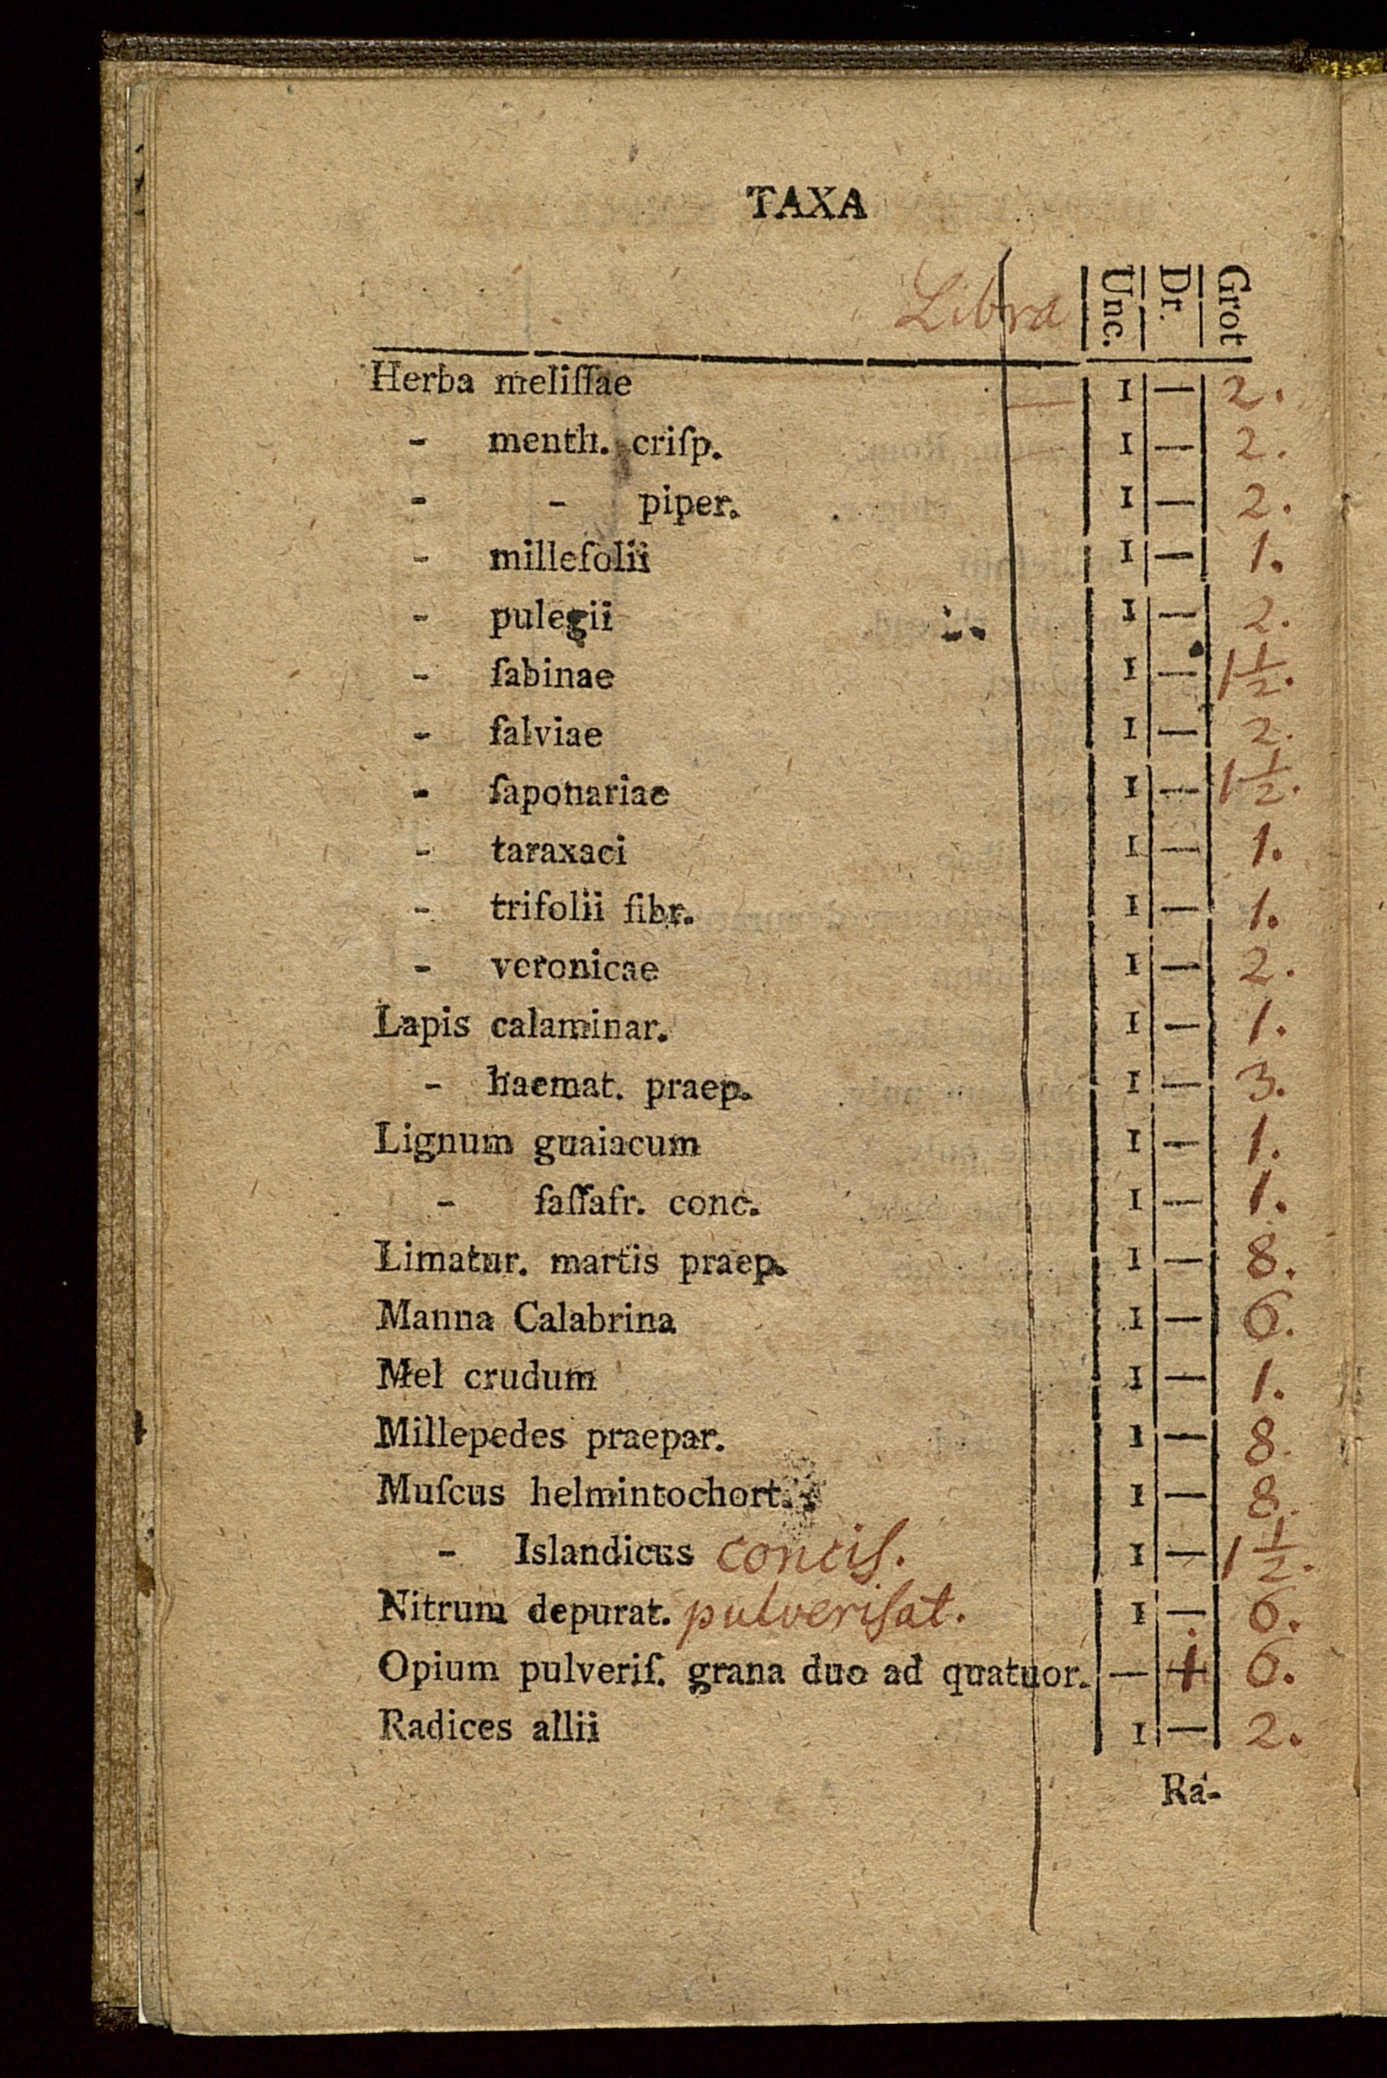 TAXA
Libra Unc. Dr. Grot
Herba meliſſae — 1 — 2.
- menth. criſp. — 1 — 2.
- - piper. 1 — 2.
- millefolii 1 — 1.
- pulegii 1 — 2.
- ſabinae 1 — 1½.
- ſalviae 1 — 2.
- ſaponariae 1 — 1½.
- taraxaci 1 — 1.
- trifolii fibr. 1 — 1.
- veronicae 1 — 2.
Lapis calaminar. 1 — 1.
- haemat. praep. 1 — 3.
Lignum guaiacum 1 — 1.
- ſaſſafr. conc. 1 — 1.
Limatur. martis praep. 1 — 8.
Manna Calabrina 1 — 6.
Mel crudum 1 — 1.
Millepedes praepar. 1 — 8.
Muſcus helmintochort. 1 — 8.
- Islandicus conciſ. 1 — 1½.
Nitrum depurat. pulveriſat. 1 — 6.
Opium pulveriſ. grana duo ad quatuor. — 1 6.
Radices allii 1 — 2.
Ra-